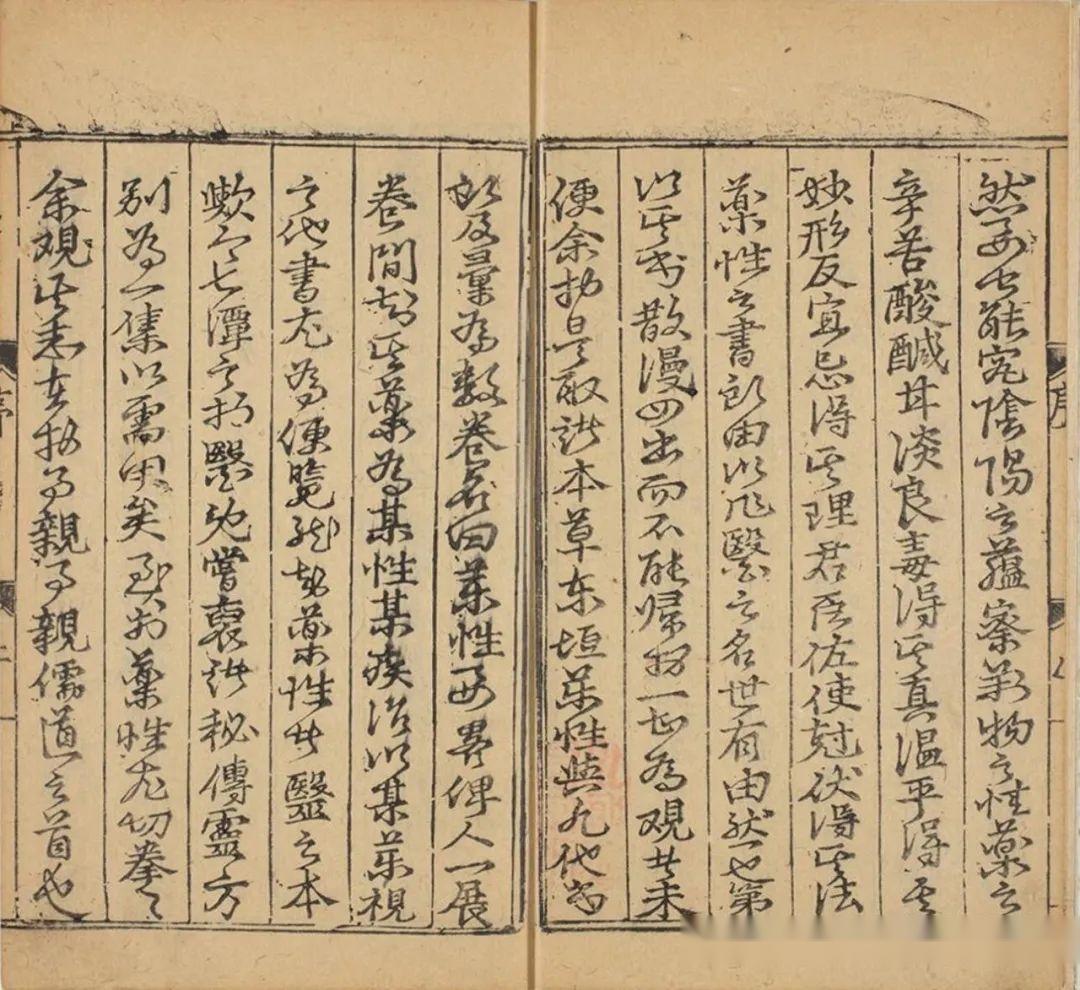 然要能究陰陽之蘊察物之性藥之
辛苦酸醎甘淡良毒得其真温平得其
妙形反宜忌得其理君臣佐使尅伏得其法
藥性之書所由以作醫之名世有由然也第
以其書散漫四出而不能歸於一甚為观者未
便余於是取諸本草东垣藥性與九代書
所及彙為數卷名曰藥性要畧俾人一展
卷間知其藥為某性某疾治以某藥視
之他書尤為便覽然知藥性者醫之本
歟今七潭之於醫也嘗裒諸秘傳靈方
别為一集以需用矣藥性尤切拳々
余观其志在於事親事親儒道之首也
序